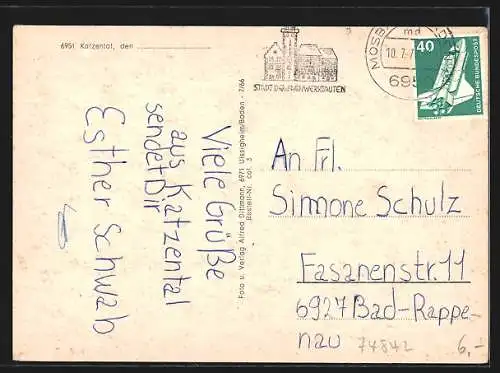 6951 Katzental, den
MOSB
10.7.7
695
STADT DER FACHWERKBAUTEN
40
DEUTSCHE BUNDESPOST
Viele Grüße
aus Katzental
sendet Dir
Esther Schwab
Foto u. Verlag Alfred Dittmann, 6971 Uissigheim/Baden 7/66
Bestell-Nr. Cat 3
An Frl.
Simone Schulz
Fasanenstr.11
6927 Bad-Rappe-
nau
74842
6,-